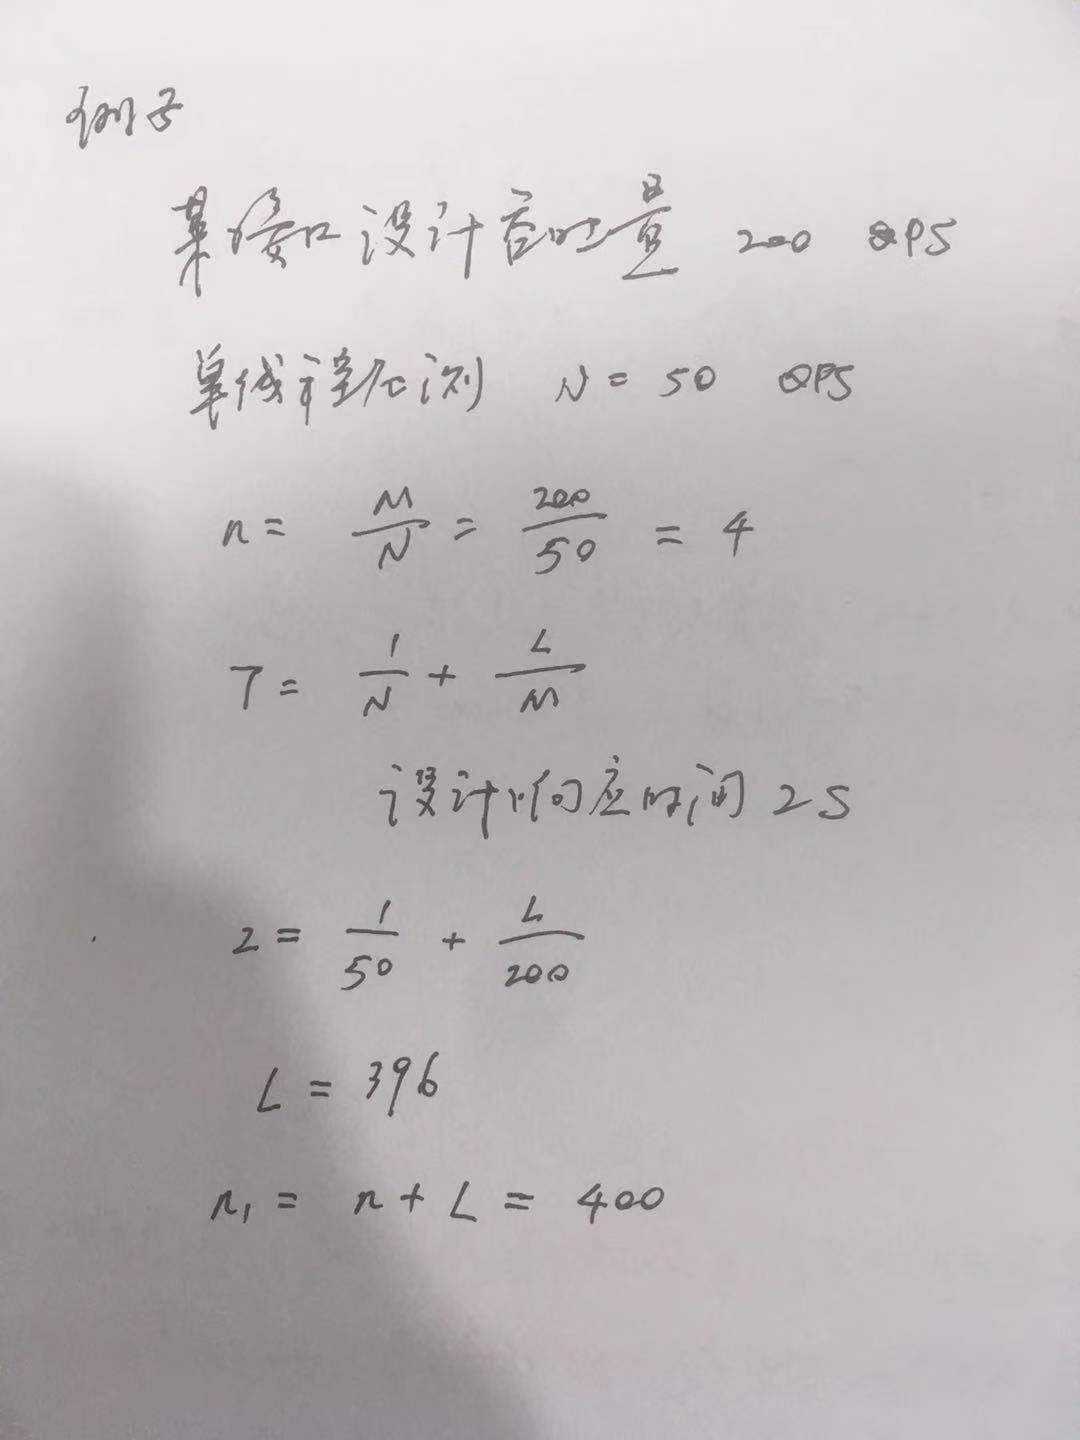 例子
某接口设计吞吐量 200 QPS
单线程压测 N = 50 QPS
n = M/N = 200/50 = 4
T = 1/N + L/M
设计响应时间 2S
2 = 1/50 + L/200
L = 396
n₁ = n + L = 400